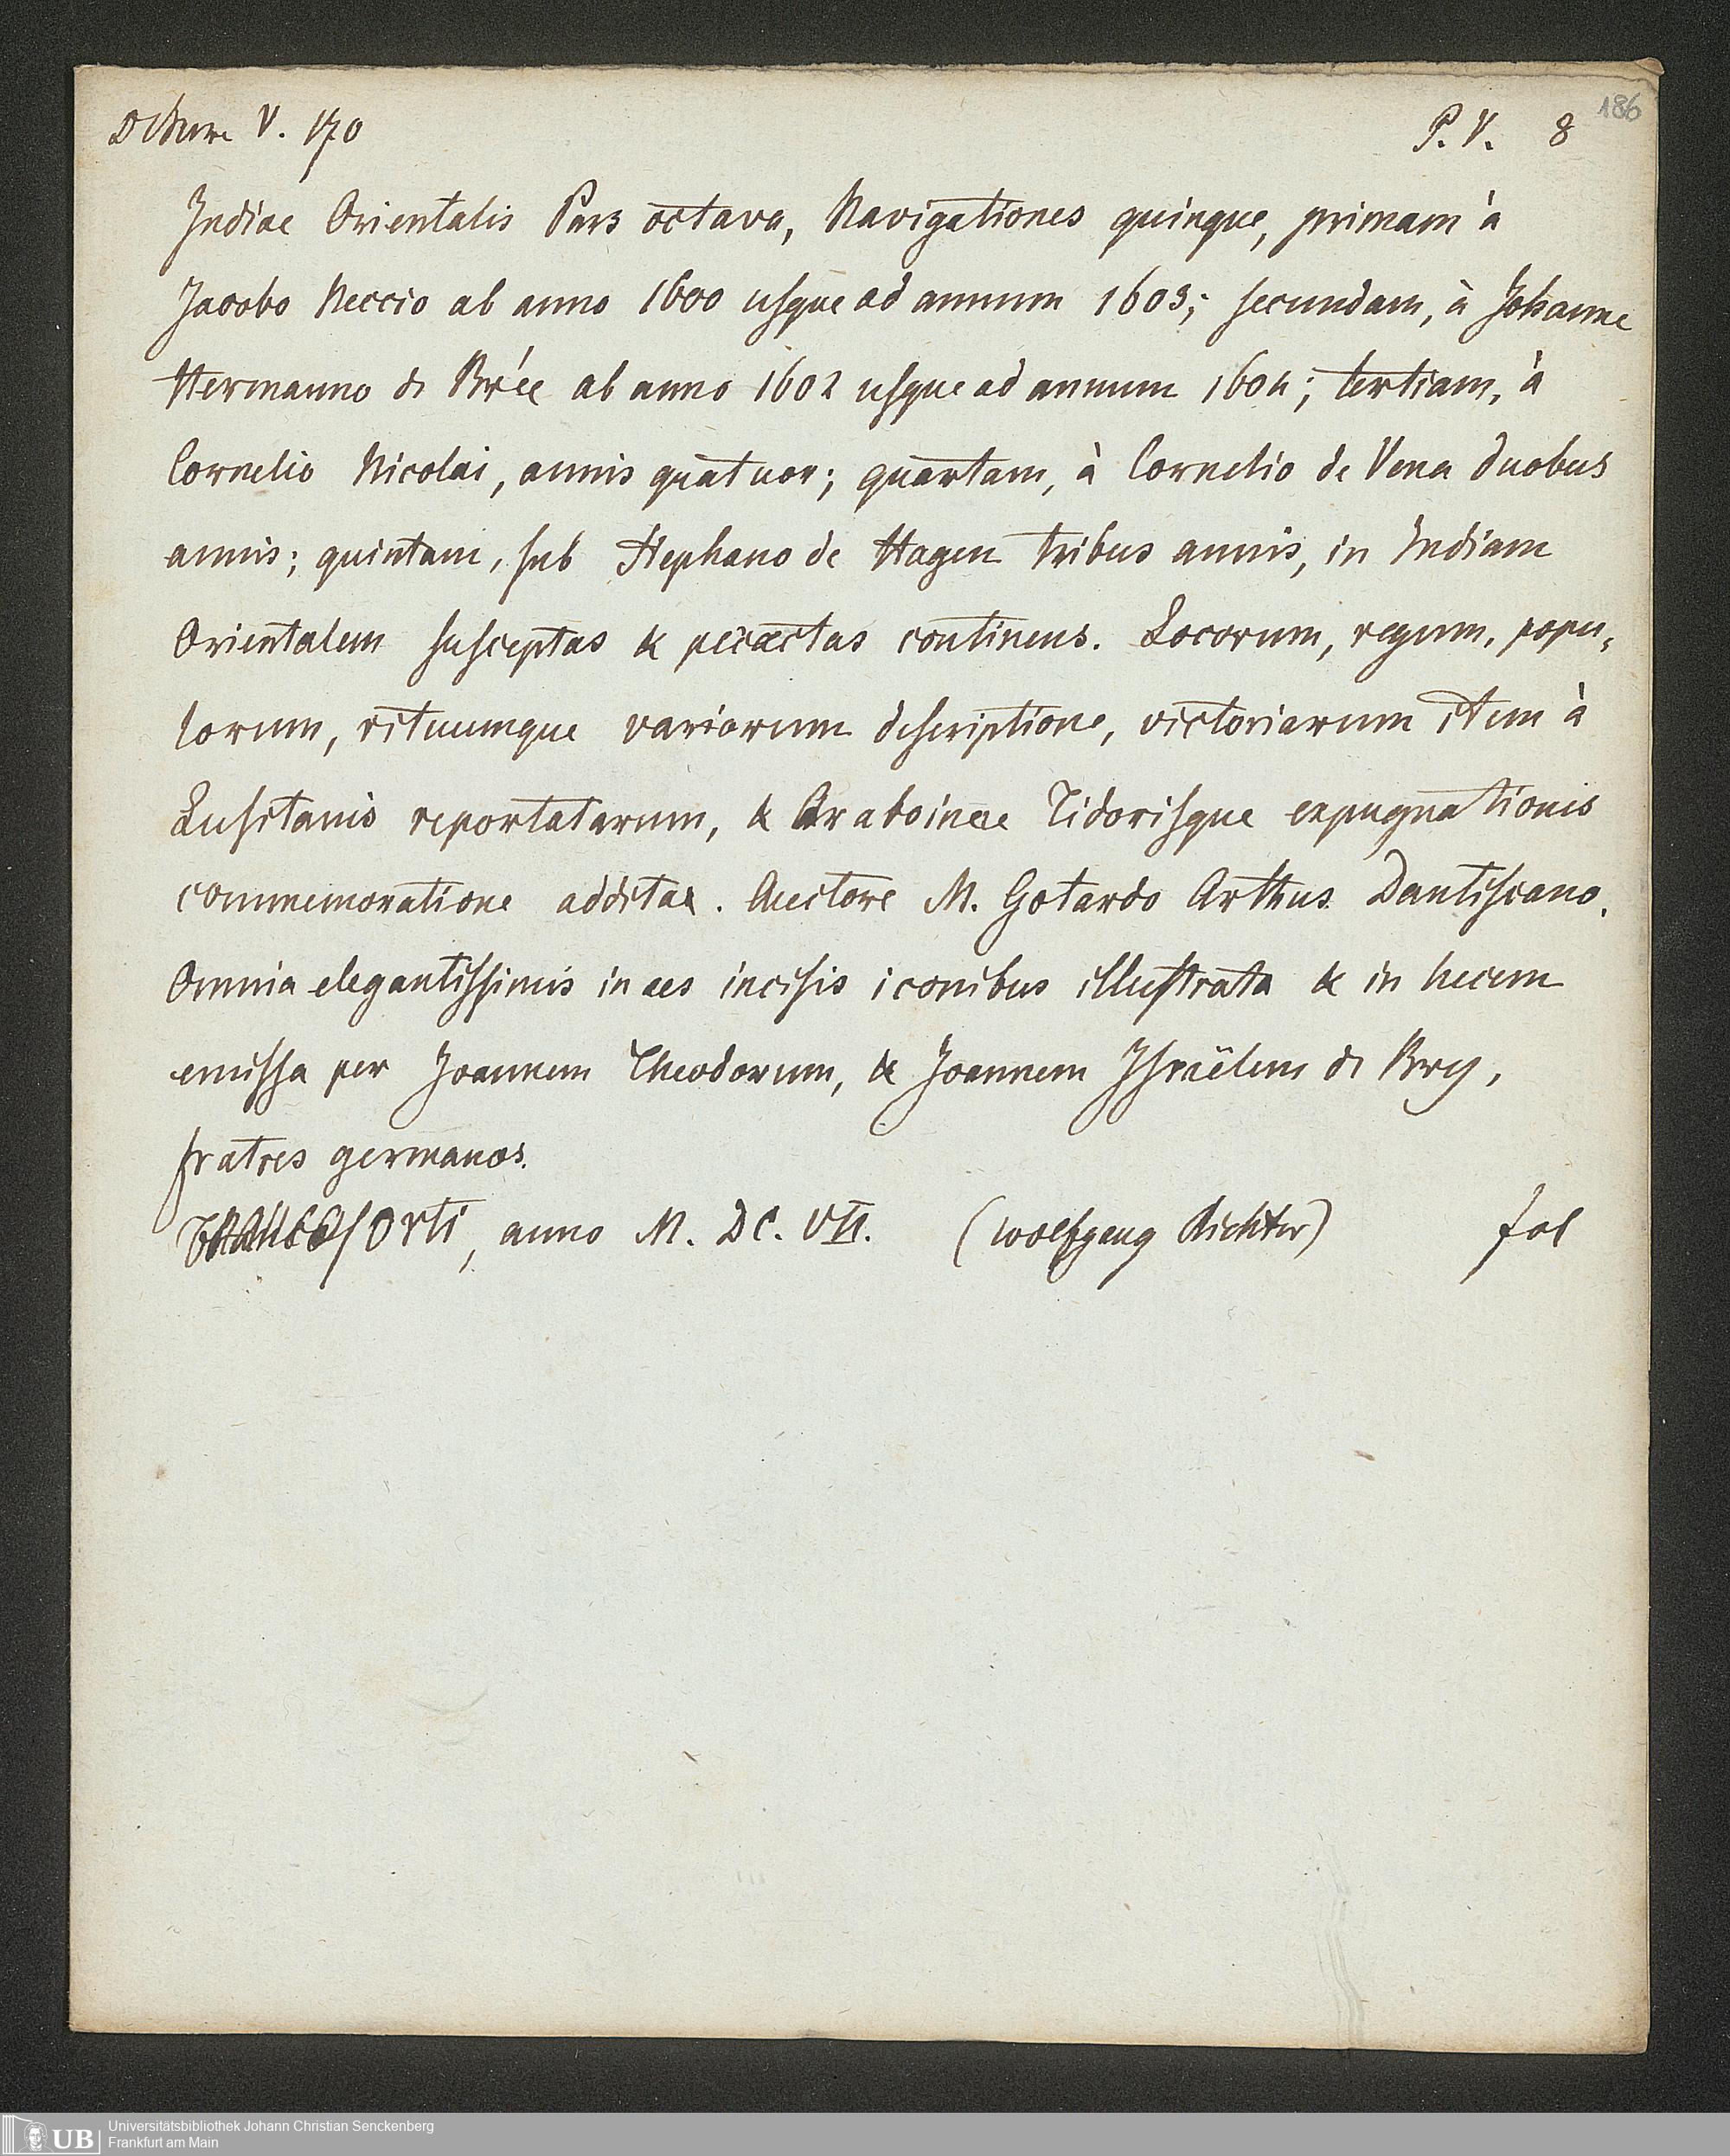 V. 170 P. V. 8 186
Indiae Orientalis Pars octava, Navigationes quinque, primam à
Jacobo Neccio ab anno 1600 usque ad annum 1603; secundam, à Johanne
Hermanno de Brée ab anno 1602 usque ad annum 1604; tertiam, à
Cornelio Nicolai, annis quatuor; quartam, à Cornelio de Vena duobus
annis; quintam, sub Stephano de Hagen tribus annis, in Indiam
Orientalem susceptas & peractas continens. Locorum, regum, popu-
lorum, rituumque variorum descriptione, victoriarum item à
Lusitanis reportatarum, & Tidorisque expugnationis
commemoratione addita. Auctore M. Gotardo Arthus Dantiscano.
Omnia elegantissimis in aes incisis iconibus illustrata & in lucem
emissa per Joannem Theodorum, & Joannem Israëlem de Bry,
fratres germanos.
Francoforti, anno M. DC. VII. (Wolfgang Richter) fol
UB Universitätsbibliothek Johann Christian Senckenberg
Frankfurt am Main